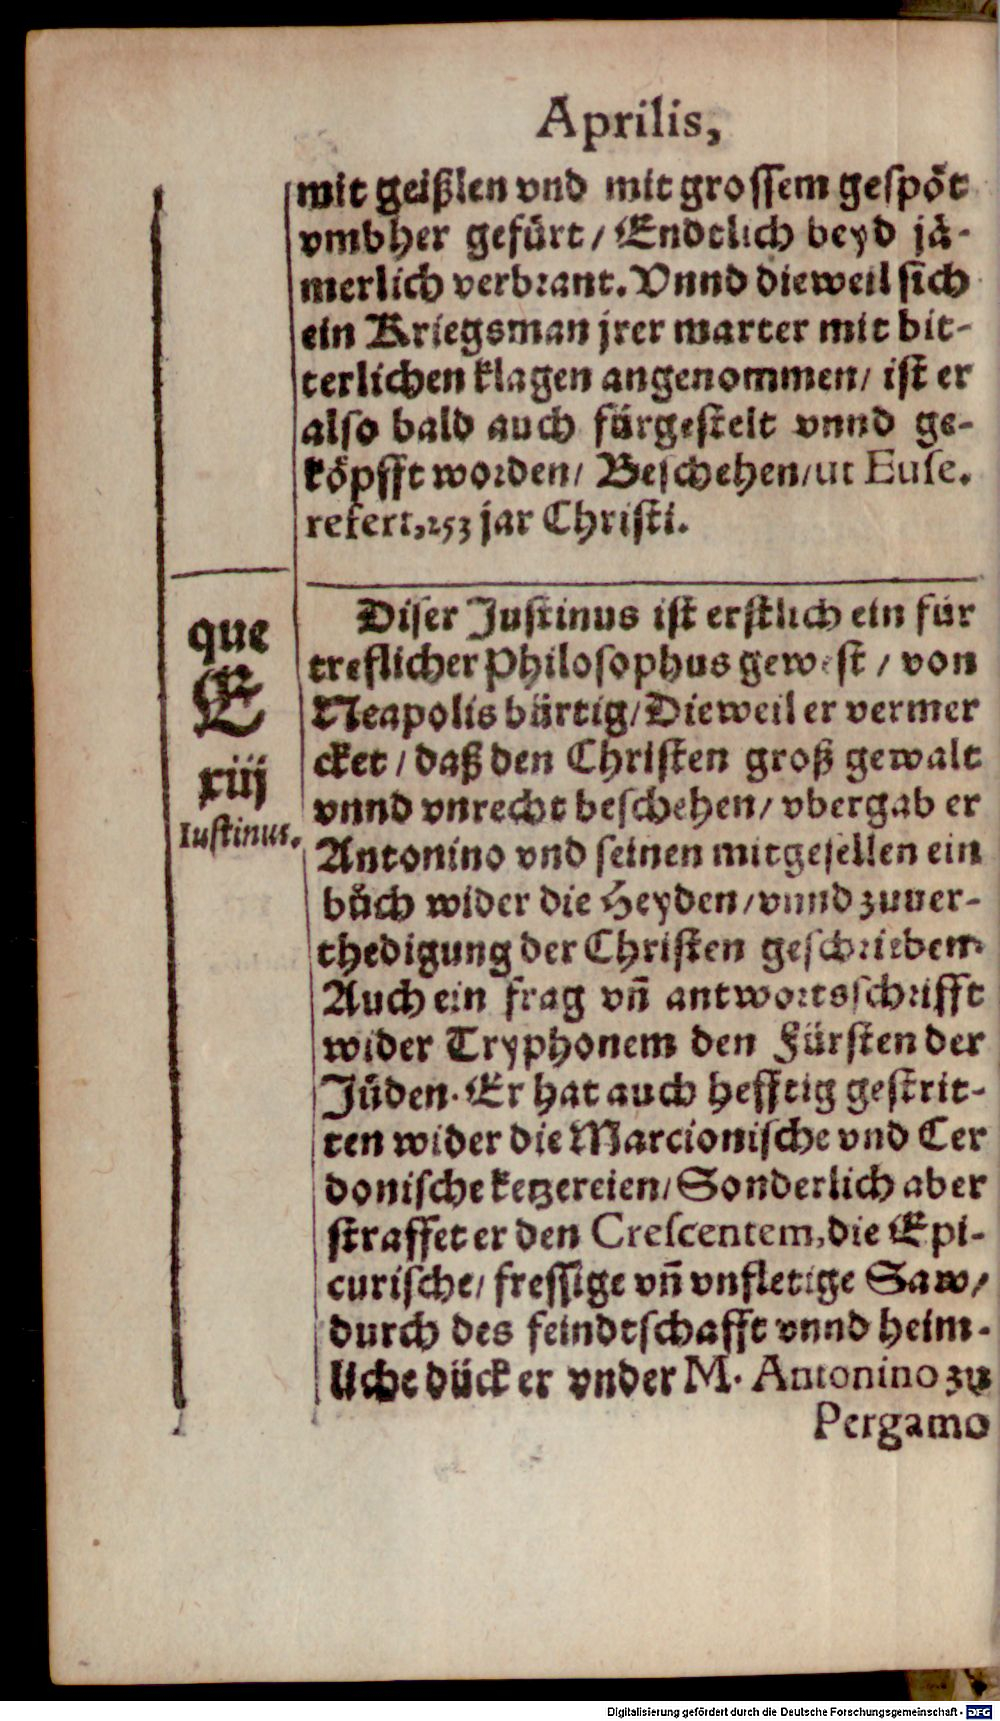 Aprilis,
mit geißlen vnd mit grossem gespöt
vmbher gefürt / Endtlich beyd jä-
merlich verbrant. Vnnd dieweil sich
ein Kriegsman jrer marter mit bit-
terlichen klagen angenommen / ist er
also bald auch fürgestelt vnnd ge-
köpfft worden / Beschehen / ut Euse.
refert, 253 jar Christi.
que
E
xiij
Iustinus.
Diser Justinus ist erstlich ein für
treflicher Philosophus gewest / von
Neapolis bürtig / Dieweil er vermer
cket / daß den Christen groß gewalt
vnnd vnrecht beschehen / vbergab er
Antonino vnd seinen mitgesellen ein
bůch wider die Heyden / vnnd zuuer-
thedigung der Christen geschrieben.
Auch ein frag vñ antwortsschrifft
wider Tryphonem den Fürsten der
Jüden. Er hat auch hefftig gestrit-
ten wider die Marcionische vnd Cer
donische ketzereien / Sonderlich aber
straffet er den Crescentem, die Epi-
curische / fressige vñ vnfletige Saw /
durch des feindtschafft vnnd heim-
liche dück er vnder M. Antonino zu
Pergamo
Digitalisierung gefördert durch die Deutsche Forschungsgemeinschaft - DFG